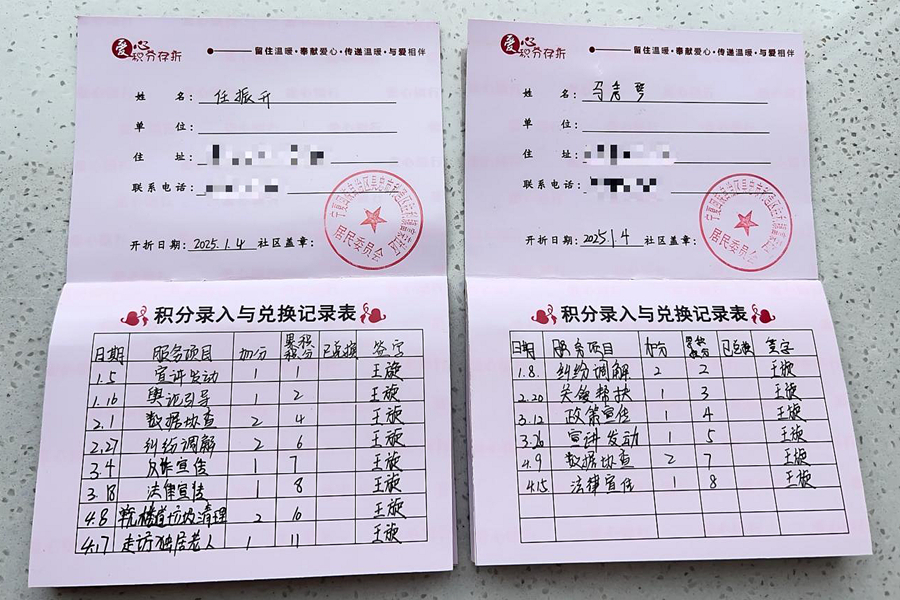 爱心
积分存折
留住温暖·奉献爱心·传递温暖·与爱相伴
姓 名: 任振升
单 位:
住 址:
联系电话:
开折日期: 2025.1.4 社区盖章:
居民委员会
积分录入与兑换记录表
日期 服务项目 加分 累积积分 已兑换 签字
1.5 宣讲发动 1 1 王旋
1.16 舆论引导 1 2 王旋
2.1 数据协查 2 4 王旋
2.27 纠纷调解 2 6 王旋
3.4 反诈宣传 1 7 王旋
3.18 法律宣传 1 8 王旋
4.8 楼道垃圾清理 2 10 王旋
4.17 走访独居老人 1 11 王旋
爱心
积分存折
留住温暖·奉献爱心·传递温暖·与爱相伴
姓 名: 马秀琴
单 位:
住 址:
联系电话:
开折日期: 2025.1.4 社区盖章:
居民委员会
积分录入与兑换记录表
日期 服务项目 加分 累积积分 已兑换 签字
1.8. 纠纷调解 2 2 王旋
2.20 关爱帮扶 1 3 王旋
3.12 政策宣传 1 4 王旋
3.26 宣讲发动 1 5 王旋
4.9 数据协查 2 7 王旋
4.15 法律宣传 1 8 王旋